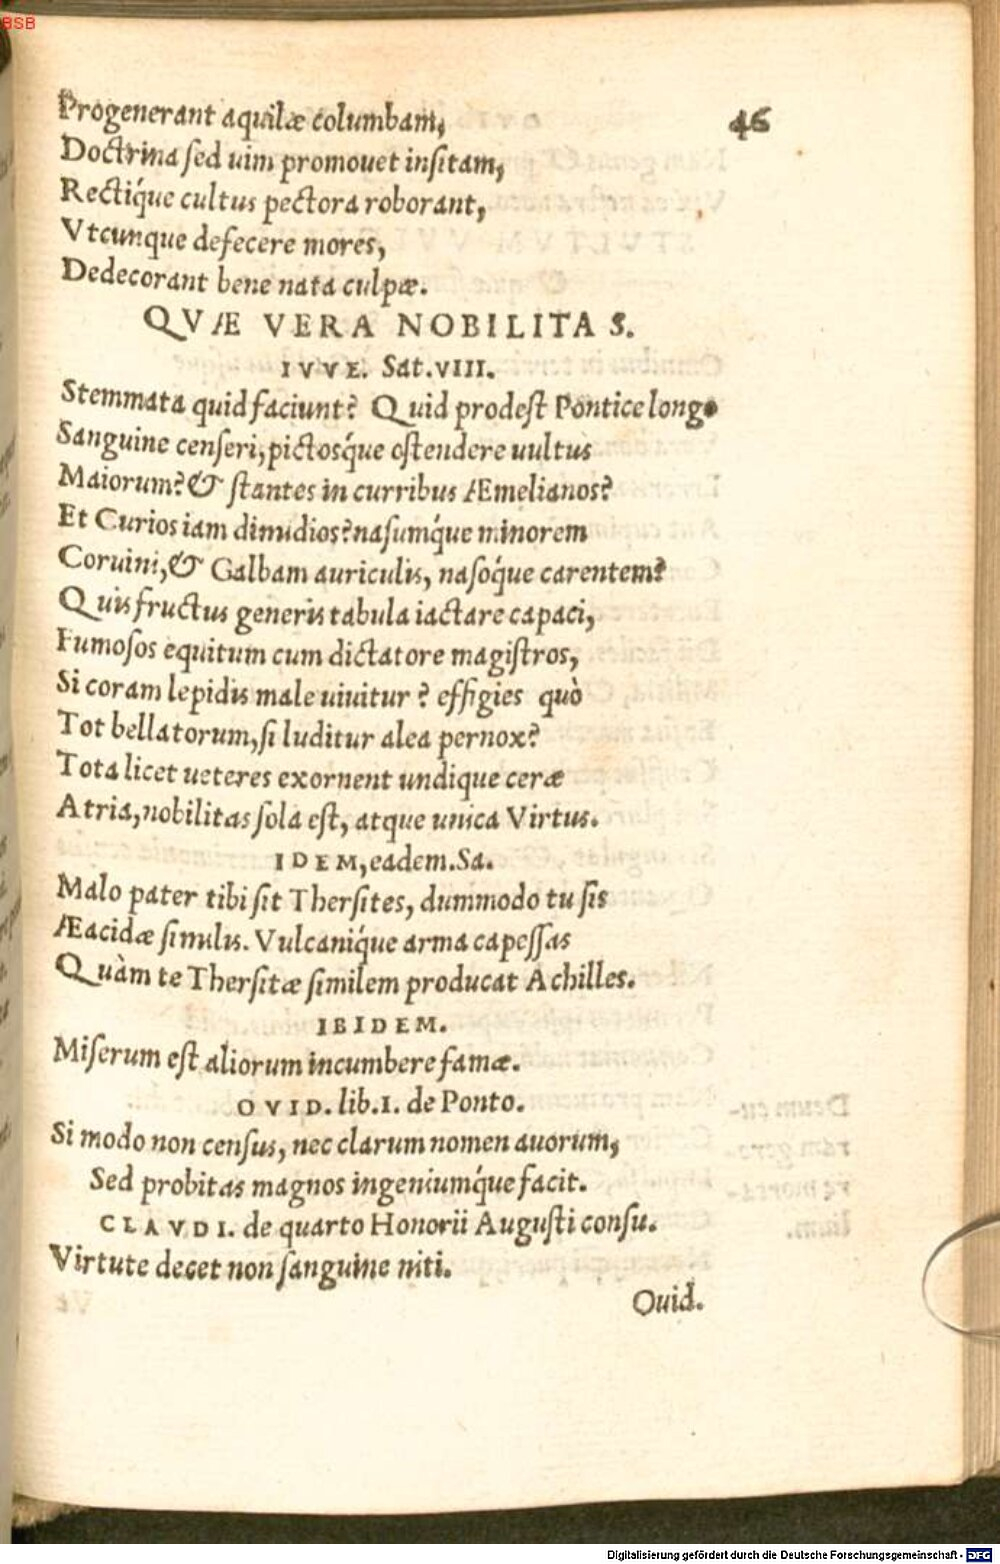 BSB
Progenerant aquilæ columbam,
46
Doctrina sed uim promouet insitam,
Rectiq́ue cultus pectora roborant,
Vtcunque defecere mores,
Dedecorant bene nata culpæ.
QVÆ VERA NOBILITAS.
IVVE. Sat. VIII.
Stemmata quid faciunt? Quid prodest Pontice longo
Sanguine censeri, pictosq́ue ostendere uultus
Maiorum? & stantes in curribus Æmelianos?
Et Curios iam dimidios? nasumq́ue minorem
Coruini, & Galbam auriculis, nasoq́ue carentem?
Quis fructus generis tabula iactare capaci,
Fumosos equitum cum dictatore magistros,
Si coram lepidis male uiuitur? effigies quò
Tot bellatorum, si luditur alea pernox?
Tota licet ueteres exornent undique ceræ
Atria, nobilitas sola est, atque unica Virtus.
IDEM, eadem. Sa.
Malo pater tibi sit Thersites, dummodo tu sis
Æacidæ similis. Vulcaniq́ue arma capessas
Quàm te Thersitæ similem producat Achilles.
IBIDEM.
Miserum est aliorum incumbere famæ.
OVID. lib. I. de Ponto.
Si modo non census, nec clarum nomen auorum,
Sed probitas magnos ingeniumq́ue facit.
CLAVDI. de quarto Honorii Augusti consu.
Virtute decet non sanguine niti.
Ouid.
Digitalisierung gefördert durch die Deutsche Forschungsgemeinschaft - DFG